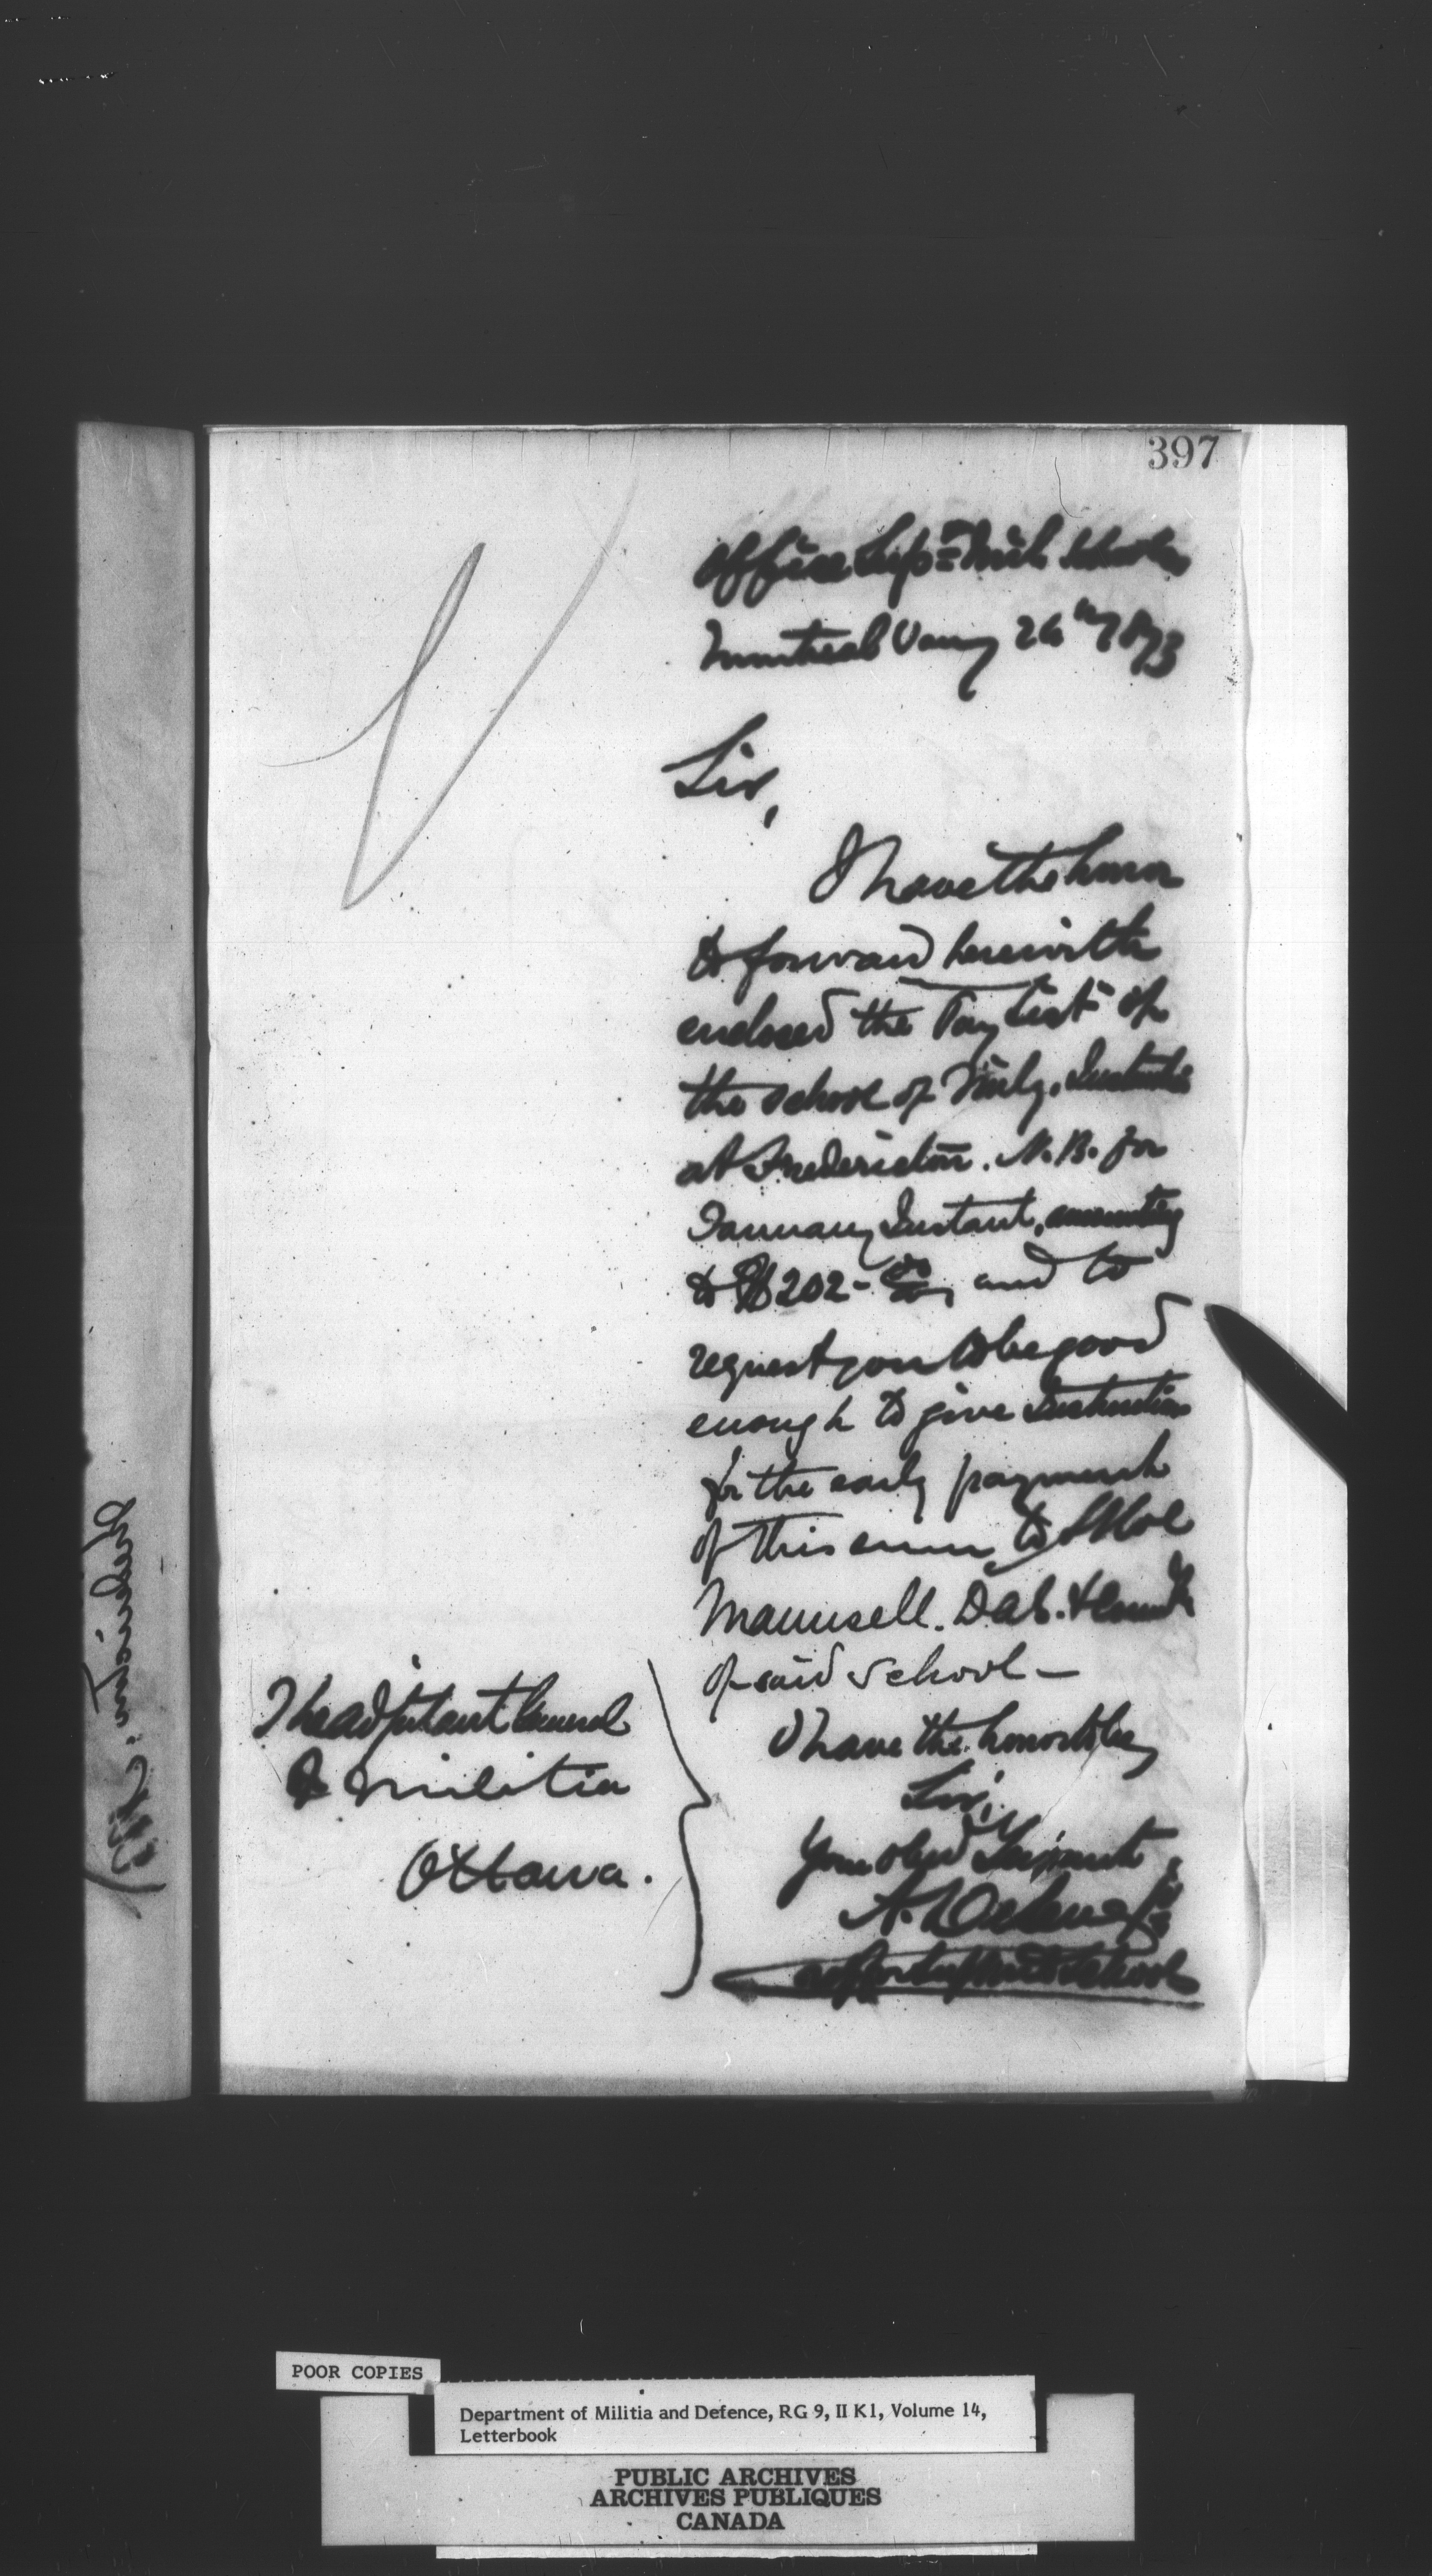 397
Office Sup= Mil Schools
Montreal Jany 26th 1873
Sir,
I have the honor
to forward herewith
enclosed the Pay List of
the School of Mily. Instructn
at Fredericton. N.B. for
January Instant, amounting
to $202- and to
request you to be good
enough to give Instruction
for the early payment
of this sum to Lt Col
Maunsell. DAG. & Comdt
of said School —
I have the honor to be,
Sir,
Your obed Servant
A.
School
The Adjutant General
of Militia
Ottawa.
POOR COPIES
Department of Militia and Defence, RG 9, II K1, Volume 14,
Letterbook
PUBLIC ARCHIVES
ARCHIVES PUBLIQUES
CANADA